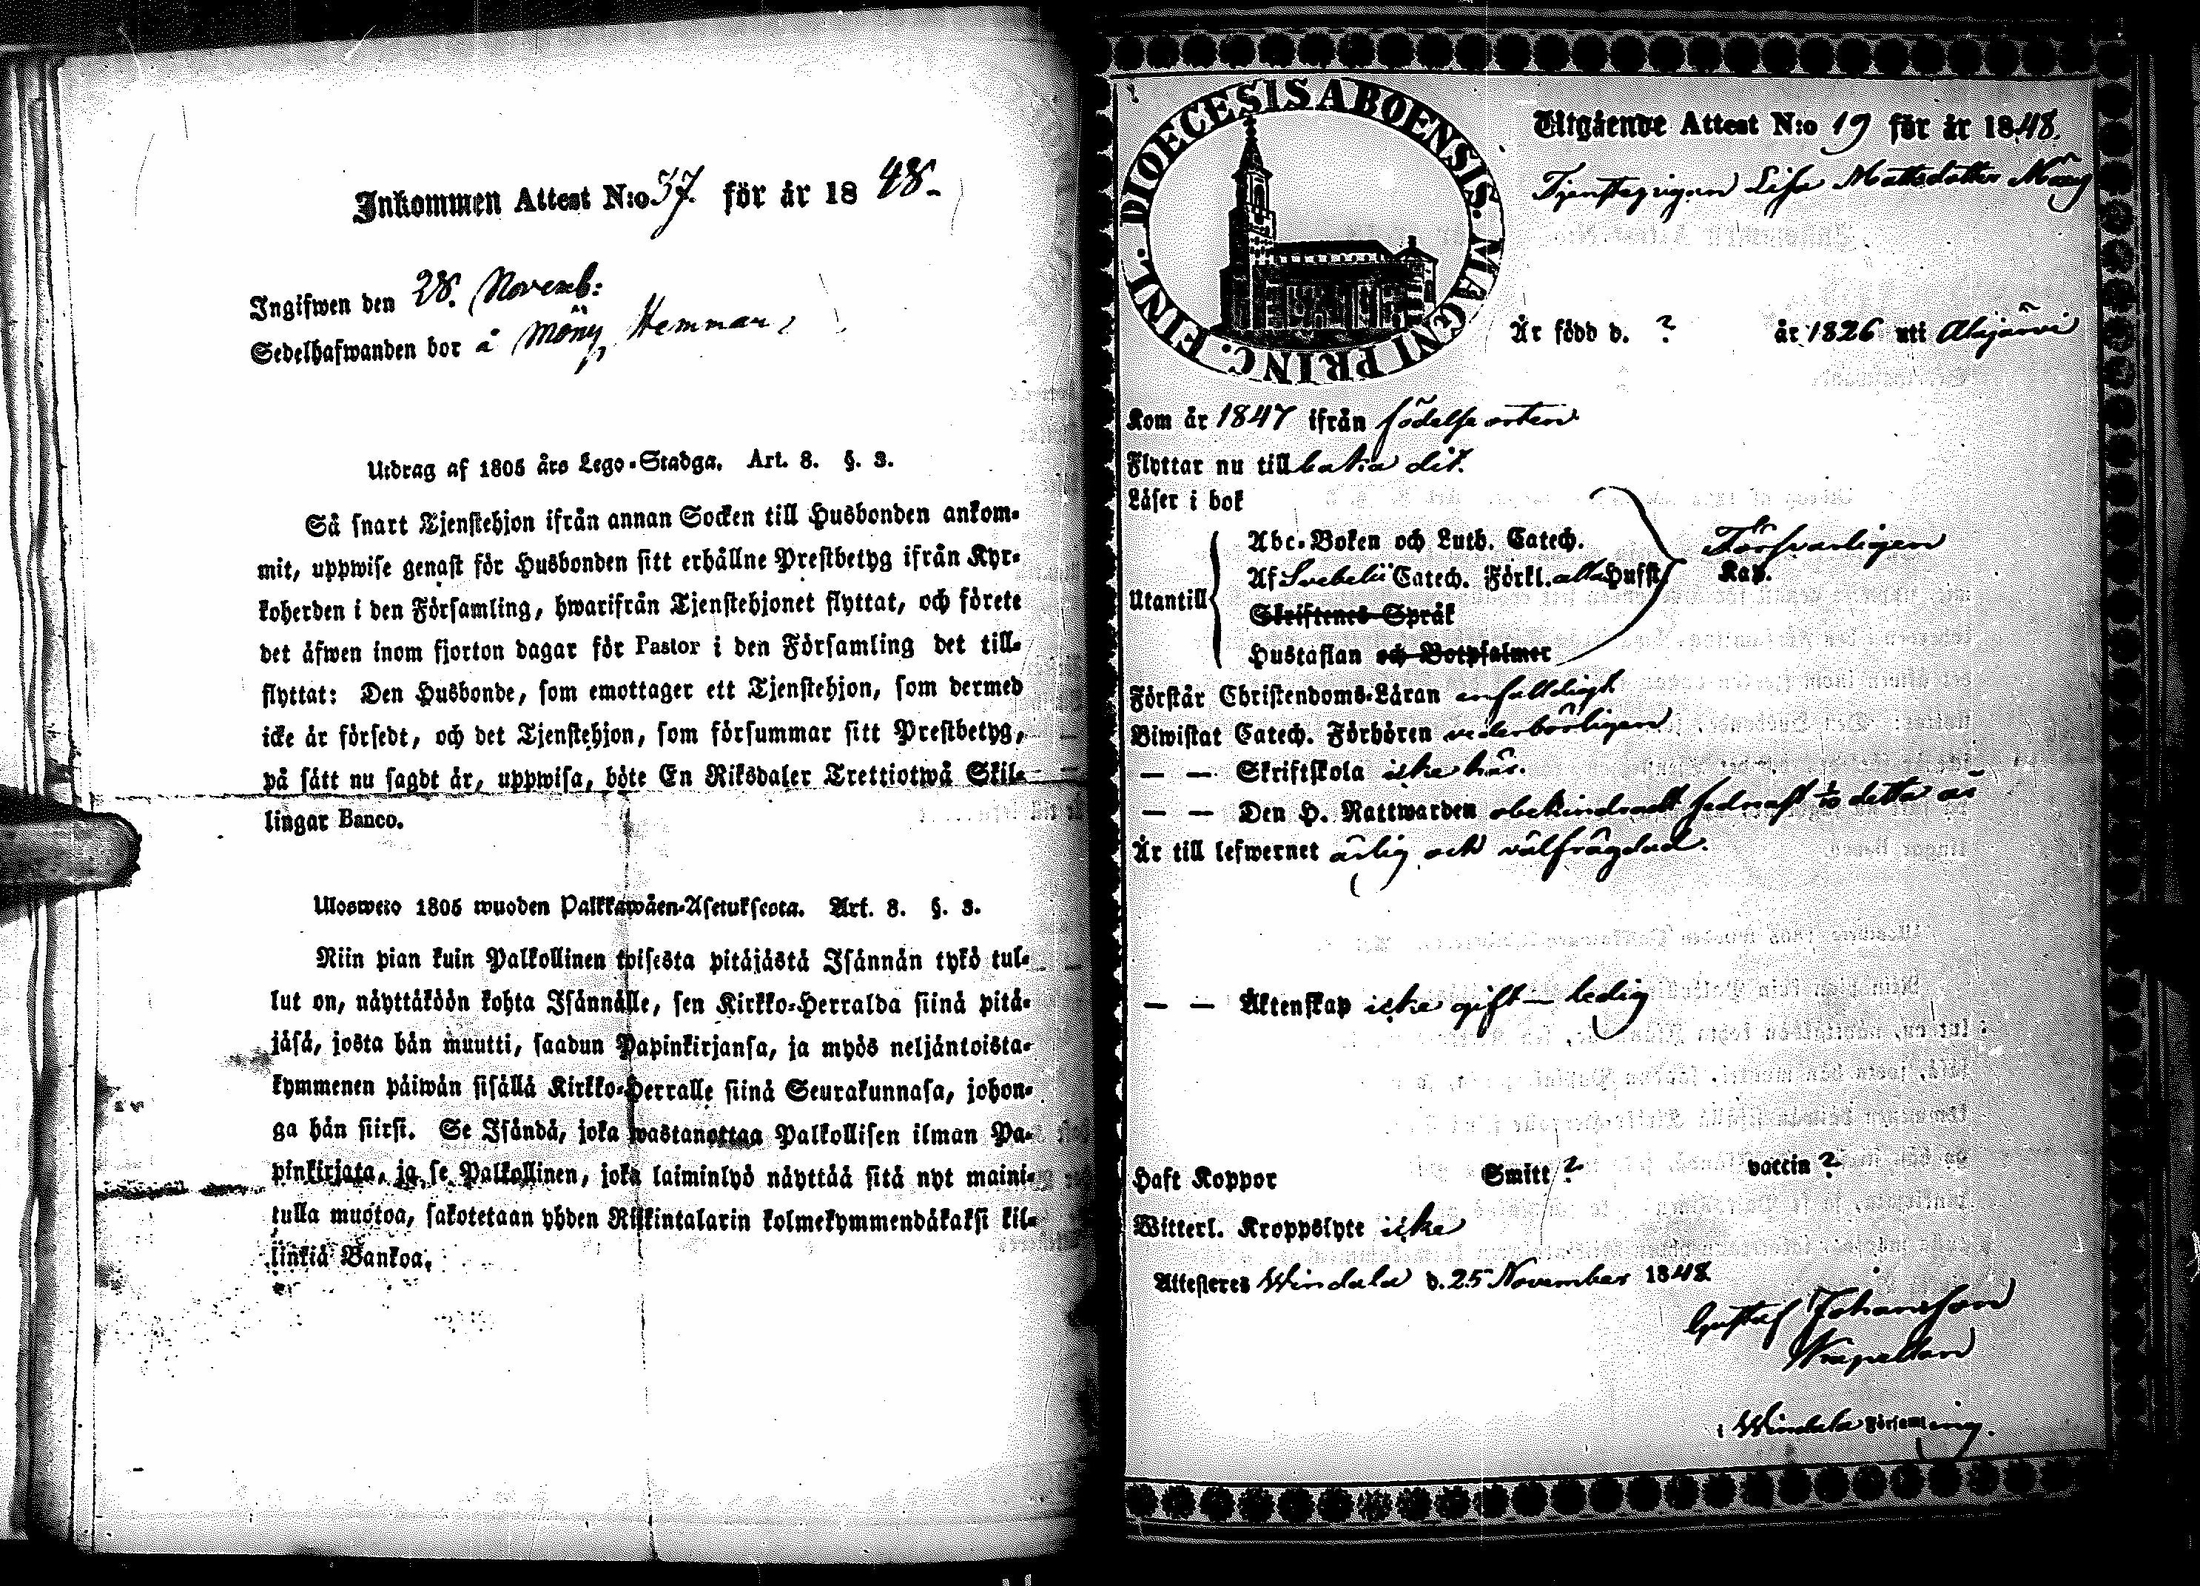 Inkommen Attest N:o 57. för år 1848.
Ingifwen den 28. Novemb:
Sedelhafwanden bor å Möny Hemman,
Utdrag af 1805 års Lego-Stadga. Art. 8. §. 3.
Så snart Tjenstehjon ifrån annan Socken till Husbonden ankom-
mit, uppwise genast för Husbonden sitt erhållne Prestbetyg ifrån Kyr-
koherden i den Församling, hwarifrån Tjenstehjonet flyttat, och förete
det äfwen inom fjorton dagar för Pastor i den Församling det till-
flyttat: Den Husbonde, som emottager ett Tjenstehjon, som dermed
icke är försedt, och det Tjenstehjon, som försummar sitt Prestbetyg,
på sätt nu sagdt är, uppwisa, böte En Riksdaler Trettiotwå Skil-
lingar Banco.
Ulosweto 1805 wuoden Palkkawäen-Asetuksesta. Art. 8. §. 3.
Niin pian kuin Palkollinen toisesta pitäjästä Isännän tykö tul-
lut on, näyttäköön kohta Isännälle, sen Kirkko-Herralda siinä pitä-
jäsä, josta hän muutti, saadun Papinkirjansa, ja myös neljäntoista-
kymmenen päiwän sisällä Kirkko-Herralle siinä Seurakunnasa, johon-
ga hän siirsi. Se Isändä, joka wastanottaa Palkollisen ilman Pa-
pinkirjata, ja se Palkollinen, joka laiminlyö näyttää sitä nyt maini-
tulla muotoa, sakotetaan yhden Riikintalarin kolmekymmendäkaksi kil-
linkiä Bankoa.
DIOECESIS ABOENSIS. MAGNI PRINC. FINL.
Utgående Attest N:o 19 för år 1848.
Tjenstepigan Lisa Mattsdotter Möny
Är född d. ? år 1826 uti Alajärvi
Kom år 1847 ifrån födelse orten
Flyttar nu till baka dit.
Läser i bok
Abc-Boken och Luth. Catech. Försvarligen
Utantill Af Svebelii Catech. Förkl. alla Hufst. Kap.
Skriftenes Språk
Hustaflan och Botpsalmer
Förstår Christendoms-Läran enfalldigt
Biwistat Catech. Förhören vederbörligen
— — Skriftskola icke här.
— — Den H. Nattwarden obehindradt sednast i detta år
Är till lefwernet ärlig och välfrägdad.
— — Äktenskap icke gift — ledig
Haft Koppor Smitt? vaccin?
Witterl. Kroppslyte icke
Attesteres Windala d. 25 November 1848.
Gustaf Johansson
Kapellan
i Windala Församling.